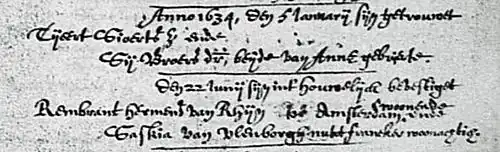 Anno 1634, den 5 Januarij sijn getrouwet
Tjeert Sioerts z ende
Sij Broers dr. beyde van Anne gebuerte.
Den 22 Junij sijn int houwelijck bevestiget
Rembrant Hermens van Rhijn tot Amsterdam woonende ende
Saskia van Ulenborgh nu tot Franeker woonachtig.